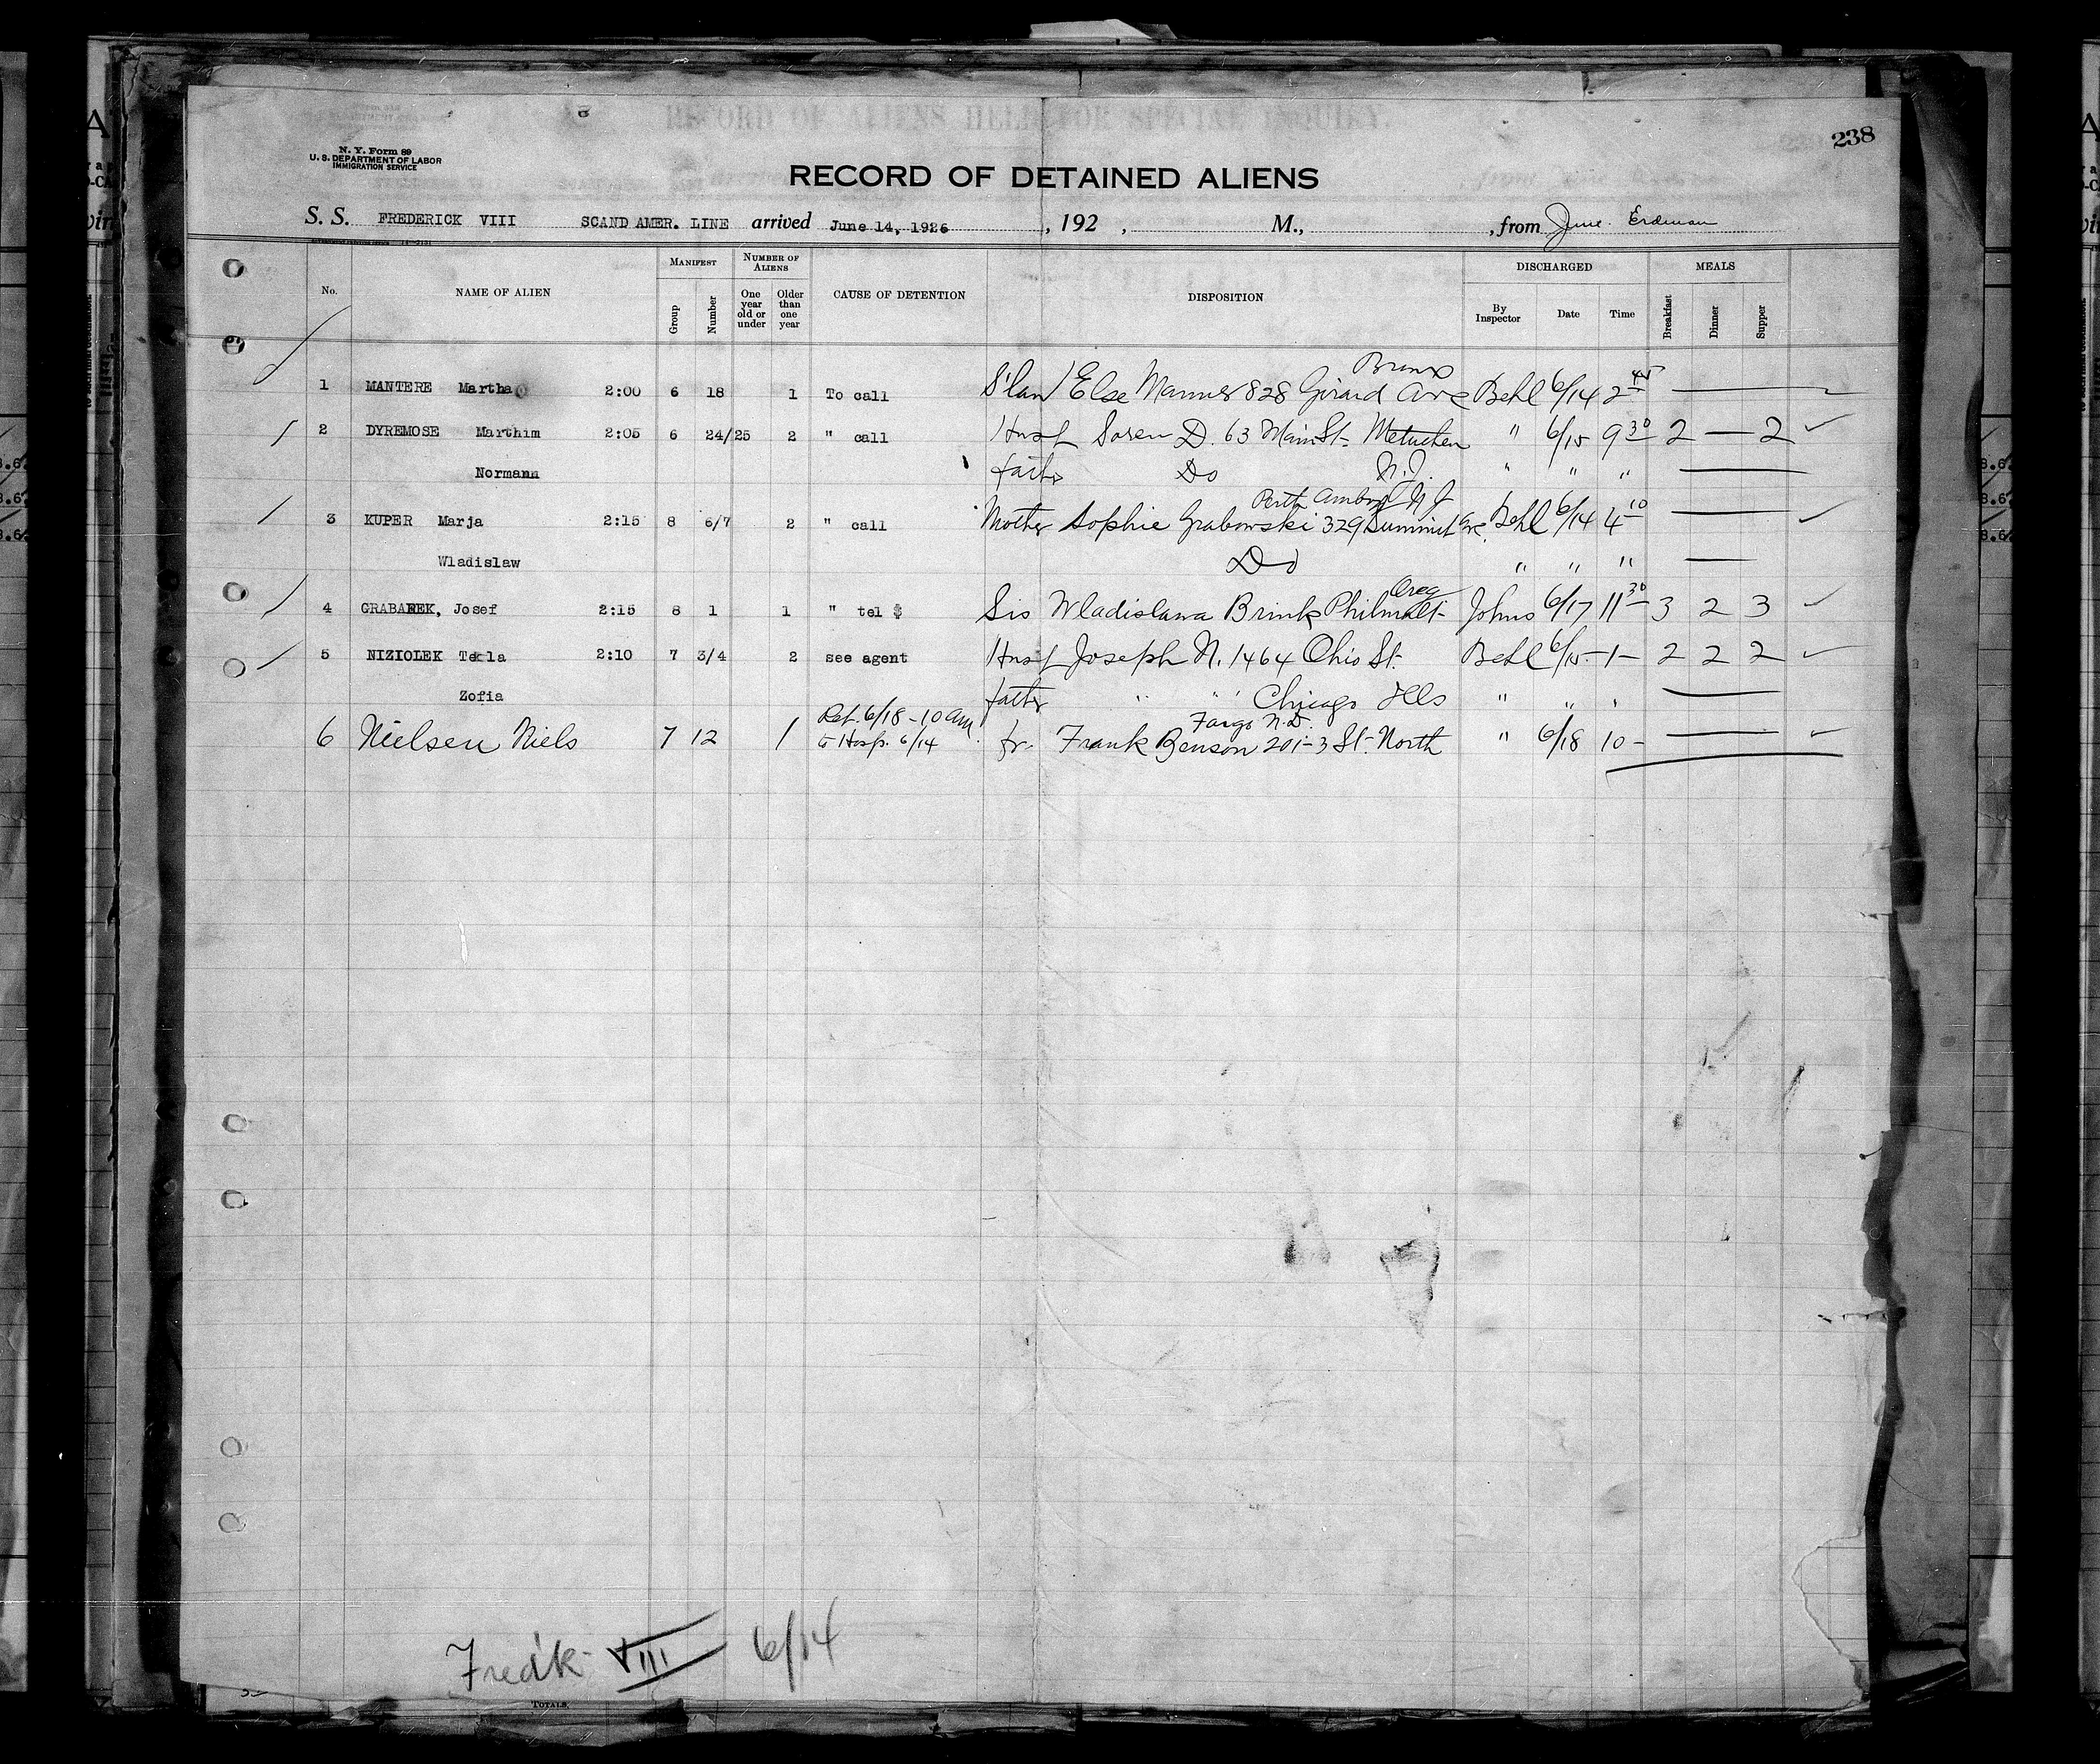 238
N. Y. Form 89
U. S. DEPARTMENT OF LABOR
IMMIGRATION SERVICE
RECORD OF ALIENS HELD FOR SPECIAL INQUIRY.
RECORD OF DETAINED ALIENS
S. S. FREDERICK VIII SCAND AMER. LINE arrived June 14, 1926, 192 , M., , from Erdman
No. NAME OF ALIEN MANIFEST Group Number NUMBER OF ALIENS One year old or under Older than one year CAUSE OF DETENTION DISPOSITION DISCHARGED By Inspector Date Time MEALS Breakfast Dinner Supper
Bronx
1 MANTERE Martha 2:00 6 18 1 To call S'law Else Manner 828 Girard Ave Behl 6/14 2 45
2 DYREMOSE Marthim 2:05 6 24/25 2 " call Husf Soren D. 63 Main St- Metuchen " 6/15 9 30 2 — 2
Normann father Do N.J. " " "
Perth Amboy N J
3 KUPER Marja 2:15 8 6/7 2 " call Mother Sophie Grabowski 329 Summit Ave. Behl 6/14 4 10
Wladislaw Do " " "
Oreg
4 GRABAREK, Josef 2:15 8 1 1 " tel $ Sis Wladislawa Brink Philmalt- Johns 6/17 11 30 3 2 3
5 NIZIOLEK Tekla 2:10 7 3/4 2 see agent Husf Joseph N. 1464 Ohio St. Behl 6/15 -1- 2 2 2
Zofia father " " Chicago Ills " " "
Ret. 6/18 - 10 am Fargo N.D.
6 Nielsen Niels 7 12 1 to Hosp. 6/14 fr. Frank Benson 201-3 St. North " 6/18 10 -
Fredk VIII 6/14
TOTALS